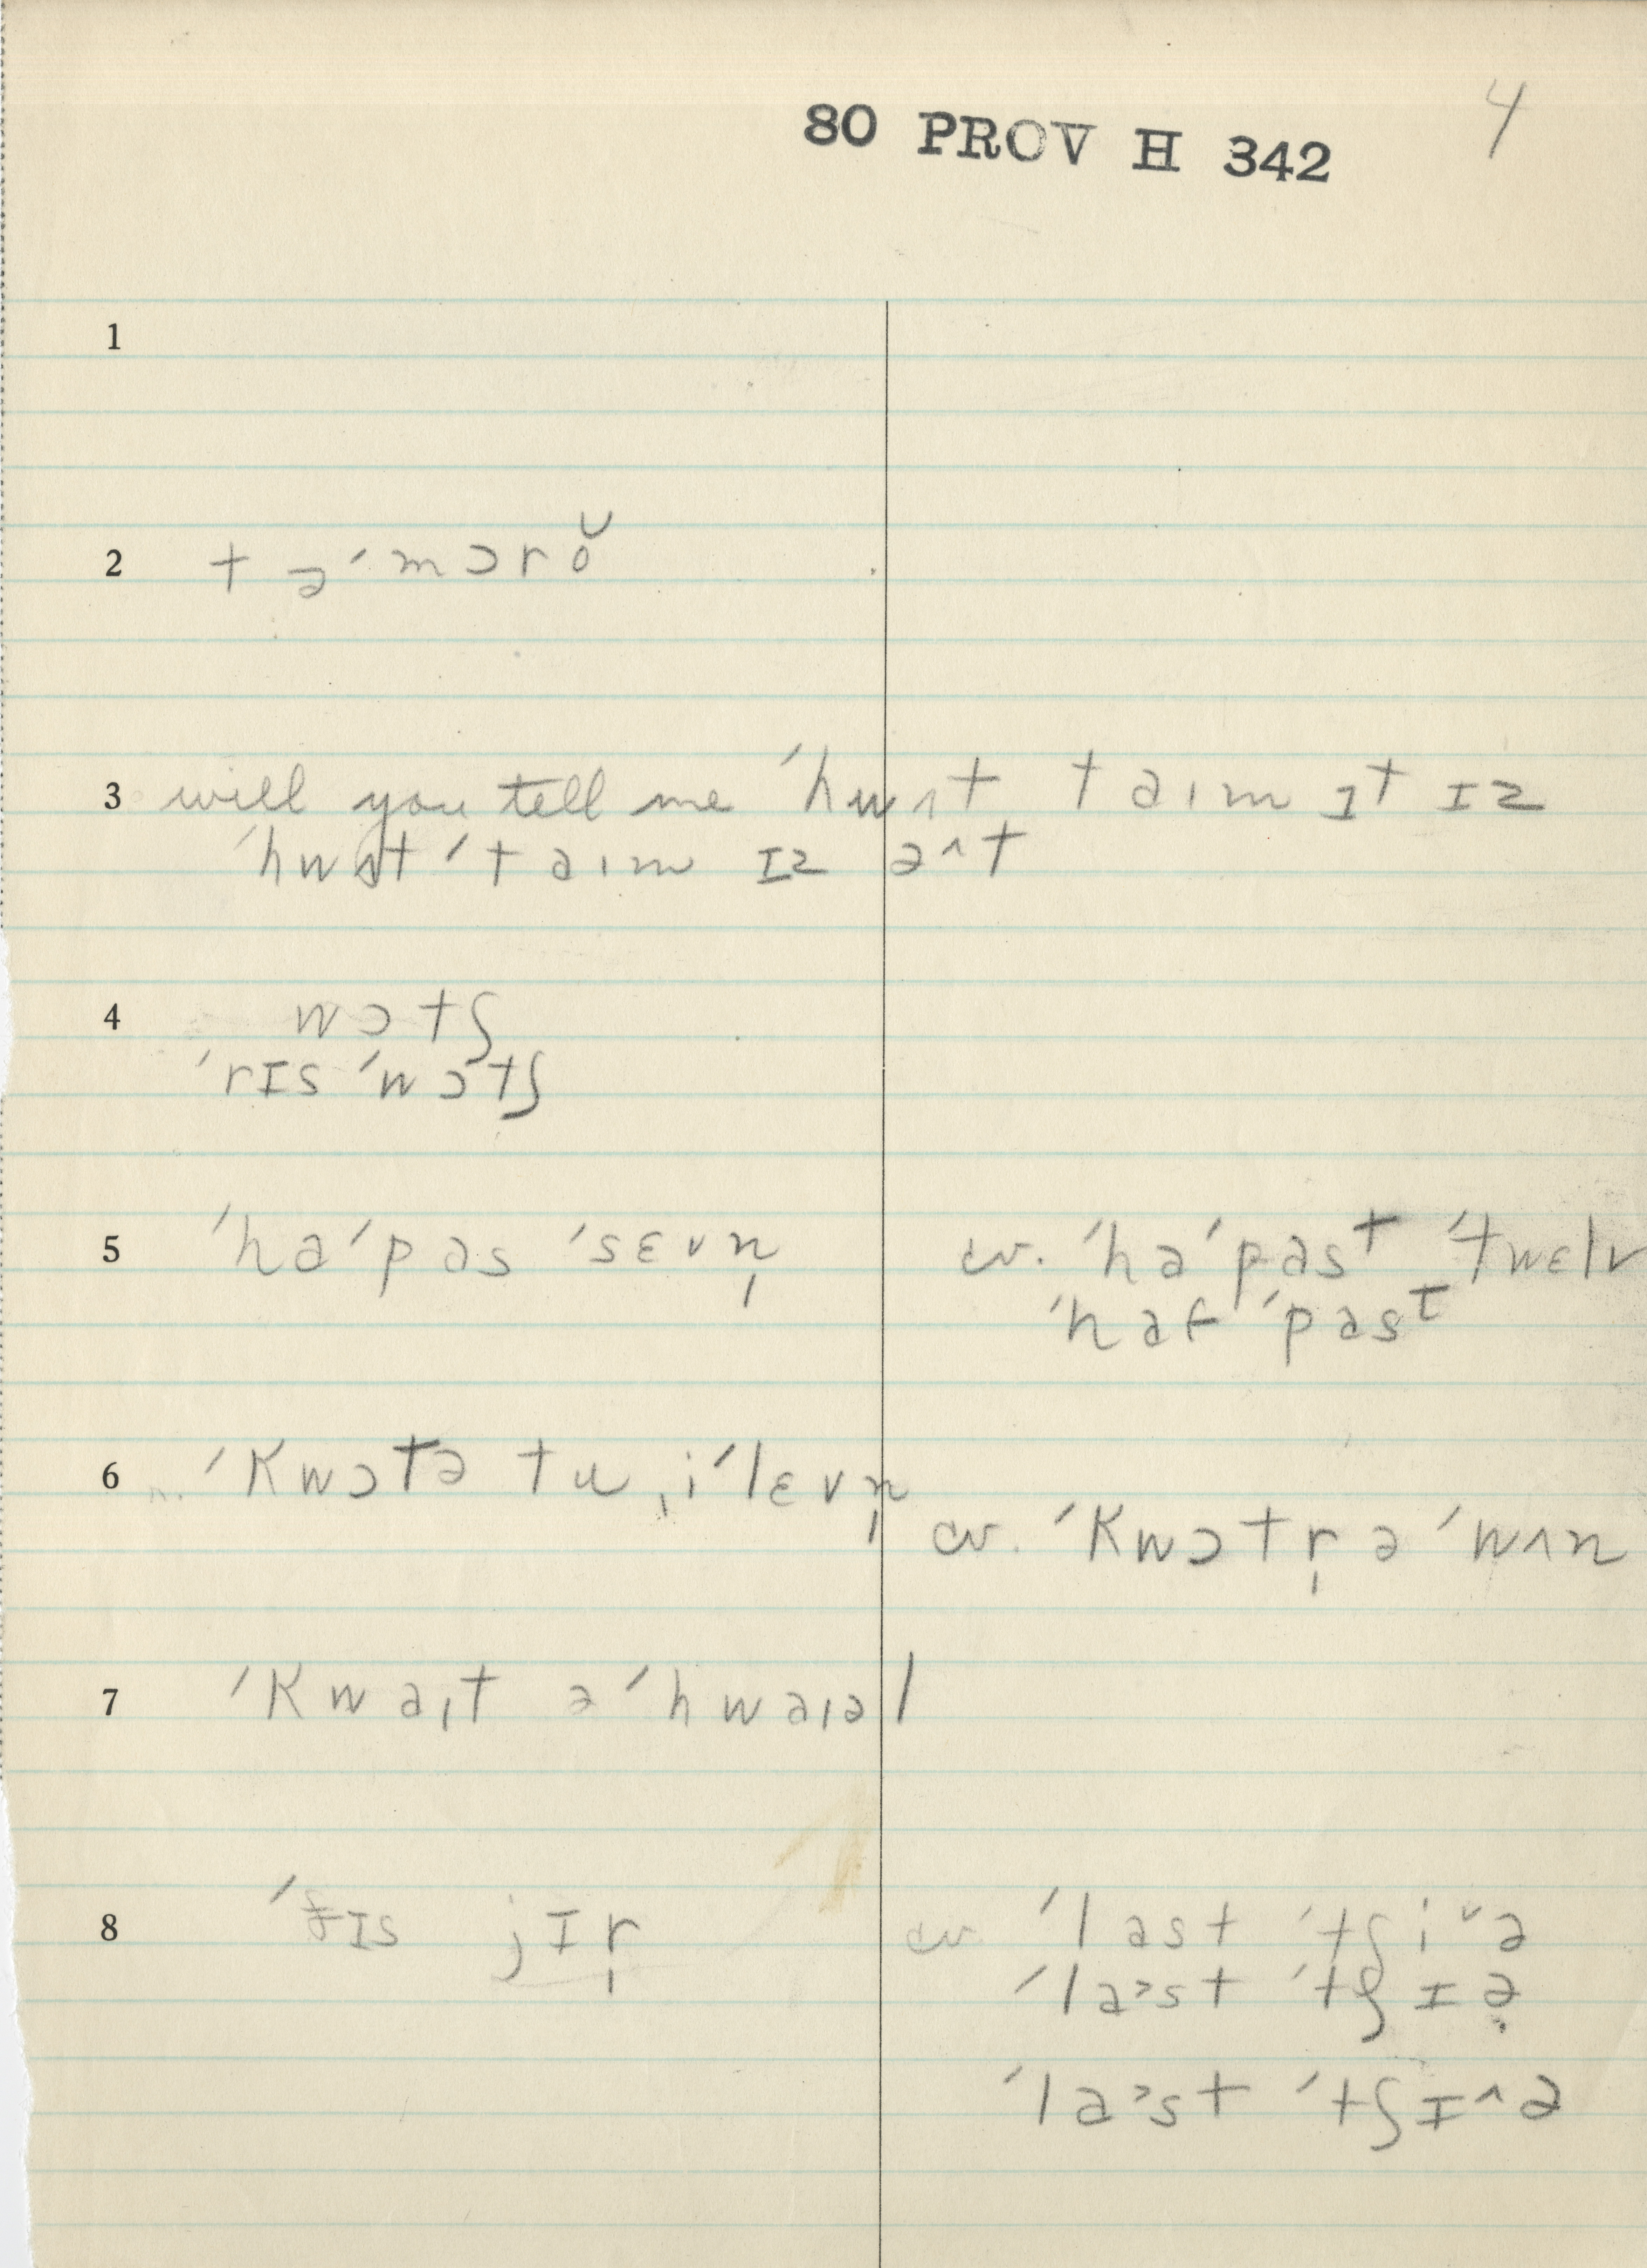 80 PROV H 342 4
1
2 tə'mɔrŏ
3 will you tell me 'hwʌt taɪm ɪt ɪz
'hwʌt 'taɪm ɪz ə^t
4 wɔtʃ
'rɪs 'wɔtʃ
5 'ha'pas 'sɛvn̩ cv. 'ha'pasᵗ 'twɛlv
'haf 'pasᵗ
6 'kwɔtə tu ˌi'lɛvn̩ cv. 'kwɔtr̩ ə 'wʌn
7 'kwaɪt ə 'hwaɪəl
8 'ðɪs jɪr̩ cv. 'last 'tʃiˇə
'la>st 'tʃɪə̣
'la>st 'tʃɪ^ə